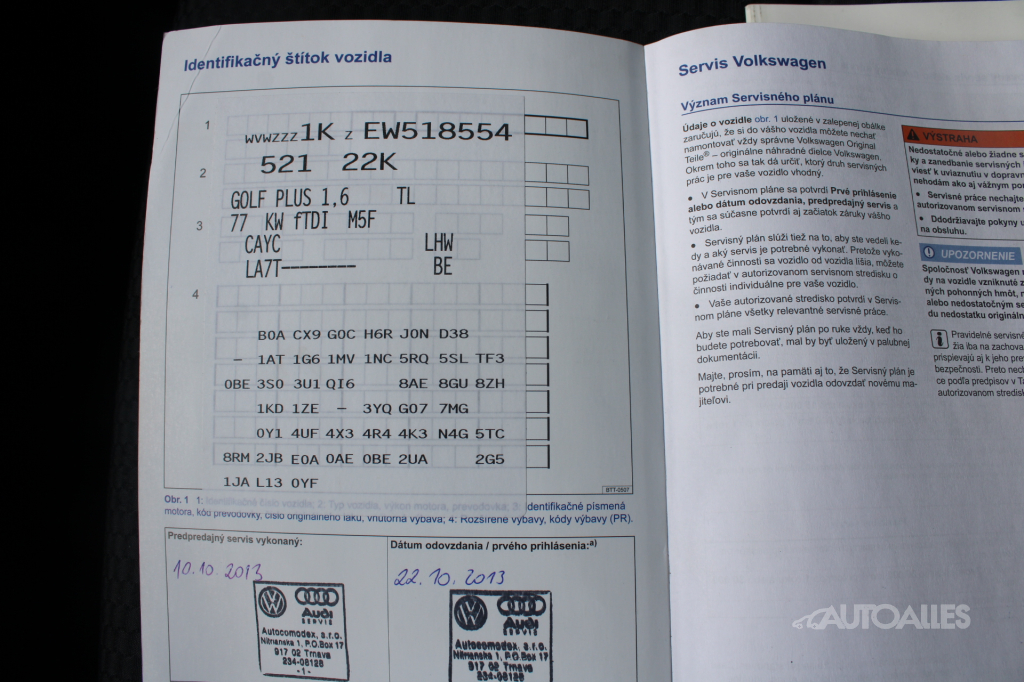 Identifikačný štítok vozidla
1
WVWZZZ1K Z EW518554
2
521 22K
GOLF PLUS 1,6 TL
3
77 KW fTDI M5F
CAYC LHW
LA7T-------- BE
4
B0A CX9 G0C H6R J0N D38
– 1AT 1G6 1MV 1NC 5RQ 5SL TF3
0BE 3S0 3U1 QI6 8AE 8GU 8ZH
1KD 1ZE – 3YQ G07 7MG
0Y1 4UF 4X3 4R4 4K3 N4G 5TC
8RM 2JB E0A 0AE 0BE 2UA 2G5
1JA L13 0YF
B7T-0507
Obr. 1 1: Identifikačné číslo vozidla; 2: Typ vozidla, výkon motora, prevodovka; 3: Identifikačné písmená
motora, kód prevodovky, číslo originálneho laku, vnútorná výbava; 4: Rozšírené výbavy, kódy výbavy (PR).
Predpredajný servis vykonaný:
10.10.2013
Audi
SERVIS
Autocomodex, s.r.o.
Nitrianska 1, P.O.Box 17
917 02 Trnava
234-08128
-1-
Dátum odovzdania / prvého prihlásenia:a)
22.10.2013
Audi
SERVIS
Autocomodex, s.r.o.
Nitrianska 1, P.O.Box 17
917 02 Trnava
234-08128
Servis Volkswagen
Význam Servisného plánu
Údaje o vozidle obr. 1 uložené v zalepenej obálke
zaručujú, že si do vášho vozidla môžete nechať
namontovať vždy správne Volkswagen Original
Teile® – originálne náhradné dielce Volkswagen.
Okrem toho sa tak dá určiť, ktorý druh servisných
prác je pre vaše vozidlo vhodný.
• V Servisnom pláne sa potvrdí Prvé prihlásenie
alebo dátum odovzdania, predpredajný servis a
tým sa súčasne potvrdí aj začiatok záruky vášho
vozidla.
• Servisný plán slúži tiež na to, aby ste vedeli ke-
dy a aký servis je potrebné vykonať. Pretože vyko-
návané činnosti sa vozidlo od vozidla líšia, môžete
požiadať v autorizovanom servisnom stredisku o
činnosti individuálne pre vaše vozidlo.
• Vaše autorizované stredisko potvrdí v Servis-
nom pláne všetky relevantné servisné práce.
Aby ste mali Servisný plán po ruke vždy, keď ho
budete potrebovať, mal by byť uložený v palubnej
dokumentácii.
Majte, prosím, na pamäti aj to, že Servisný plán je
potrebné pri predaji vozidla odovzdať novému ma-
jiteľovi.
VÝSTRAHA
Nedostatočné alebo žiadne s
ky a zanedbanie servisných
viesť k uviaznutiu v dopravn
nehodám ako aj vážnym por
• Servisné práce nechajte
autorizovanom servisnom
• Dodržiavajte pokyny u
na obsluhu.
UPOZORNENIE
Spoločnosť Volkswagen n
dy na vozidle vzniknuté z
ných pohonných hmôt, n
alebo nedostatočným se
du nedostatku origináln
Pravidelné servisné
žia iba na zachova
prispievajú aj k jeho pre
bezpečnosti. Preto nech
ce podľa predpisov v Ta
autorizovanom stredisk
AUTOALLES